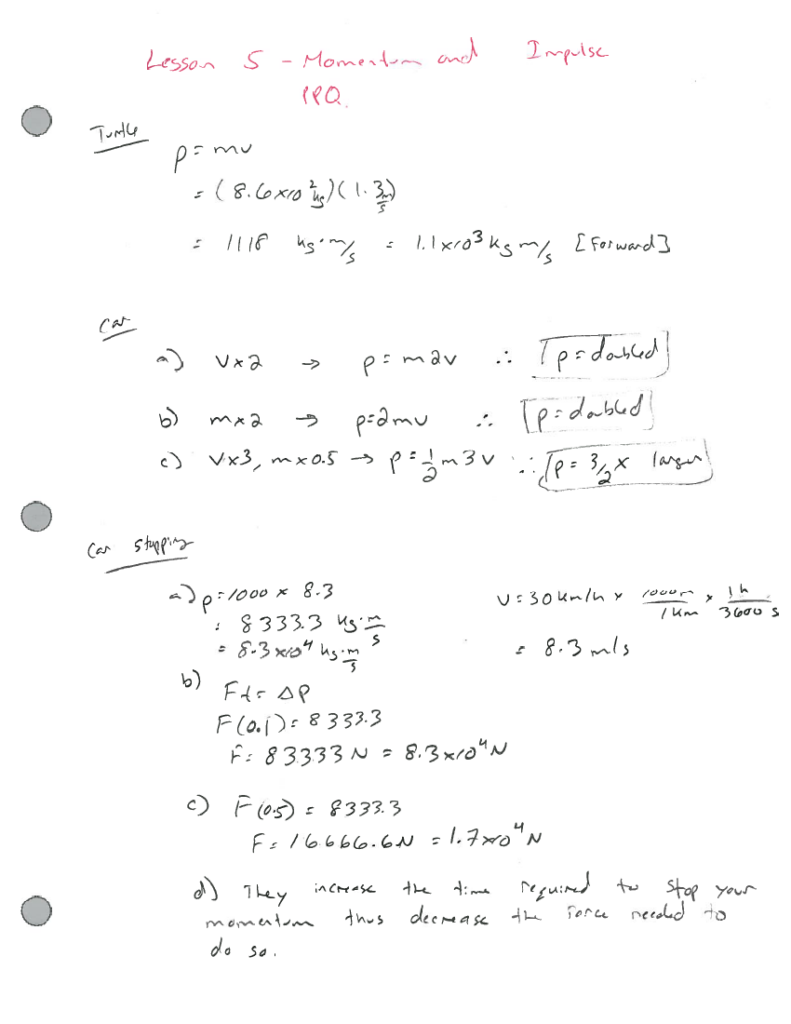 Lesson 5 - Momentum and Impulse
PPQ.
Turtle
p = mv
= (8.6x10² kg)(1.3 m/s)
= 1118 kg·m/s = 1.1x10³ kg m/s [Forward]
Car
a) v x 2 → p = m2v ∴ p = doubled
b) m x 2 → p=2mv ∴ p = doubled
c) v x 3, m x 0.5 → p = 1/2 m 3v ∴ p = 3/2 x larger
Car stopping
a) p = 1000 x 8.3
= 8333.3 kg·m/s
= 8.3 x10⁴ kg·m/s
v = 30 km/h x 1000m/1km x 1h/3600 s
= 8.3 m/s
b) Ft = Δp
F(0.1) = 8333.3
F = 83333 N = 8.3x10⁴ N
c) F(0.5) = 8333.3
F = 16666.6N = 1.7x10⁴ N
d) They increase the time required to stop your
momentum thus decrease the force needed to
do so.